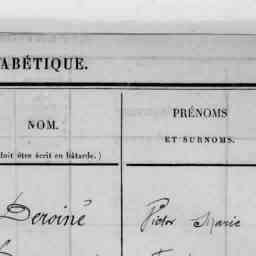 ABÉTIQUE.
NOM.
PRÉNOMS
ET SURNOMS.
doit être écrit en bâtarde.)
Deroiné
Victor Marie